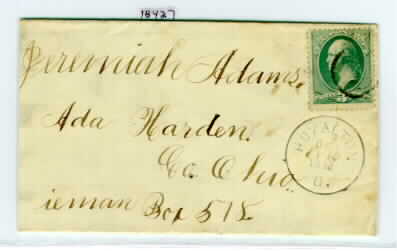 18427
Jeremiah Adams.
Ada Harden.
Co. Ohio.
ieman Box 518
ROYALTON
O.